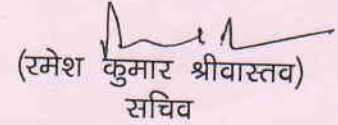 (रमेश कुमार श्रीवास्तव)
सचिव